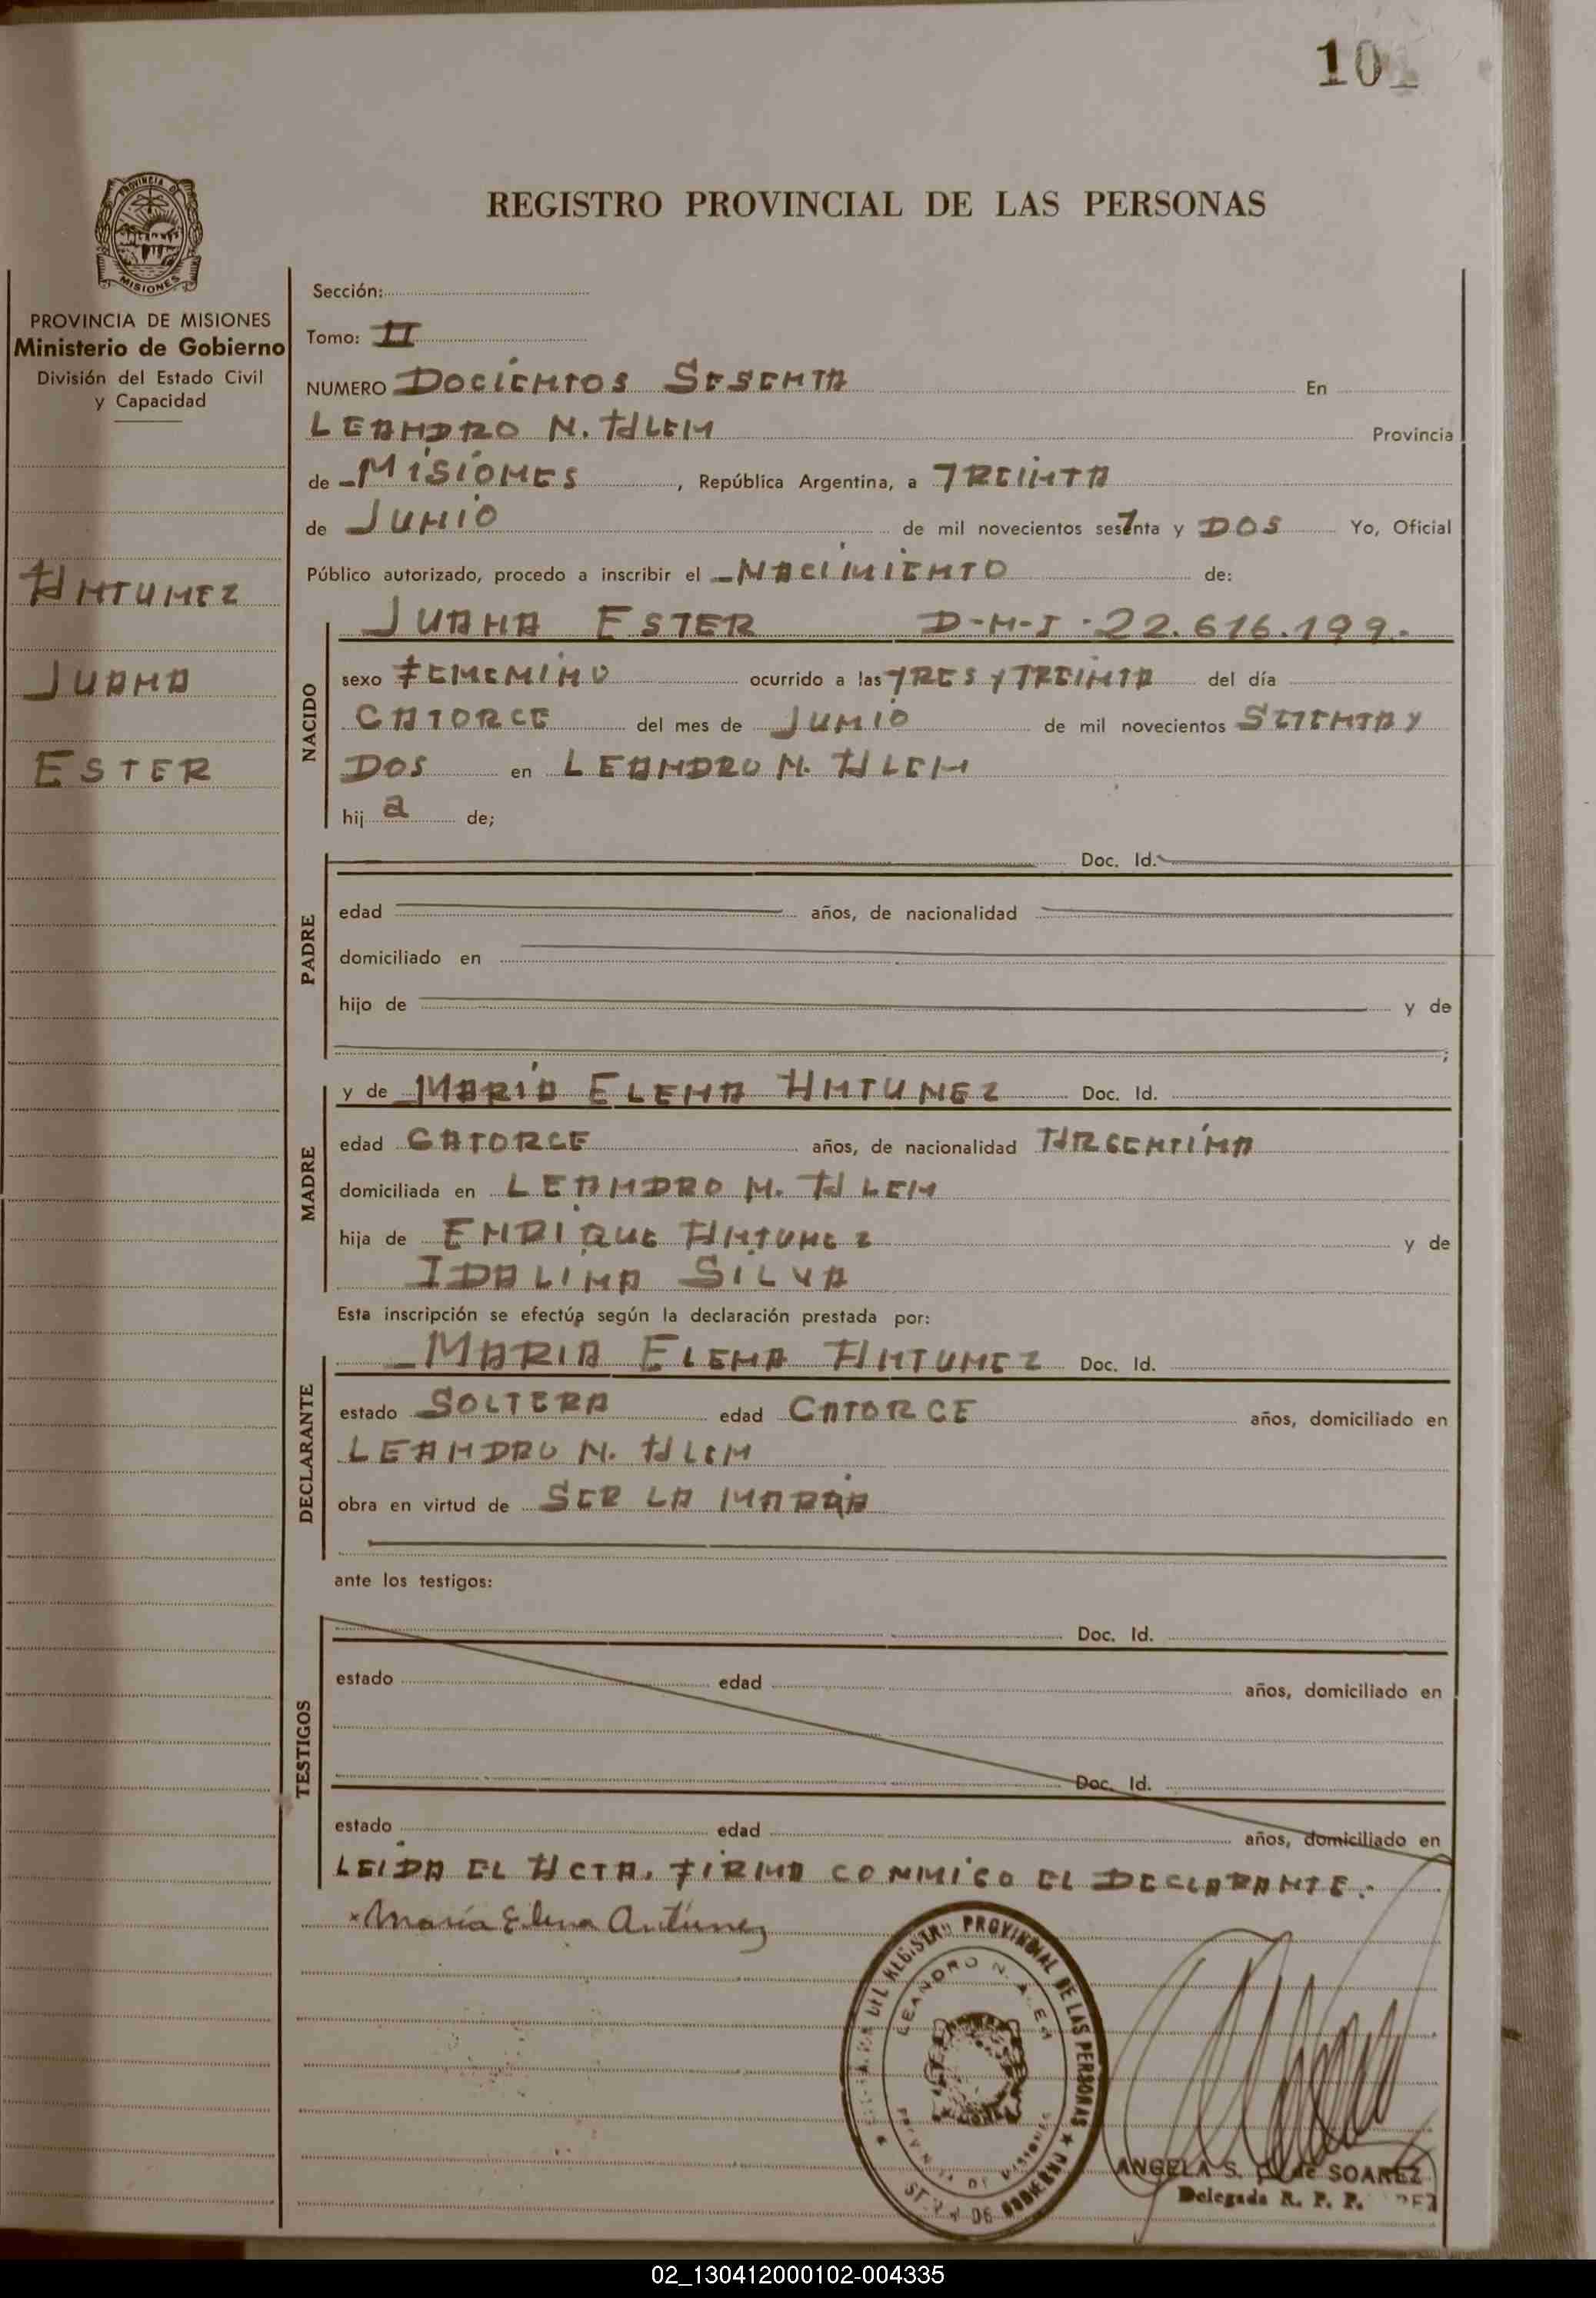 101
PROVINCIA DE
MISIONES
REGISTRO PROVINCIAL DE LAS PERSONAS
PROVINCIA DE MISIONES
Ministerio de Gobierno
División del Estado Civil
y Capacidad
ANTUNEZ
JUANA
ESTER
Sección:
Tomo: II
NUMERO DOCIENTOS SESENTA En
LEANDRO N. ALEM Provincia
de MISIONES, República Argentina, a TREINTA
de JUNIO de mil novecientos sesTnta y DOS Yo, Oficial
Público autorizado, procedo a inscribir el NACIMIENTO de:
NACIDO
JUANA ESTER D-N-I-22.616.199.
sexo FEMENINO ocurrido a las TRES Y TREINTA del día
CATORCE del mes de JUNIO de mil novecientos SETENTA Y
DOS en LEANDRO N. ALEM
hij a de;
PADRE
Doc. Id.
edad años, de nacionalidad
domiciliado en
hijo de y de
;
MADRE
y de MARÍA ELENA ANTUNEZ Doc. Id.
edad CATORCE años, de nacionalidad ARGENTINA
domiciliada en LEANDRO N. ALEM
hija de ENRIQUE ANTUNEZ y de
IDALINA SILVA
Esta inscripción se efectúa según la declaración prestada por:
DECLARANTE
MARIA ELENA ANTUNEZ Doc. Id.
estado SOLTERA edad CATORCE años, domiciliado en
LEANDRO N. ALEM
obra en virtud de SER LA
ante los testigos:
TESTIGOS
Doc. Id.
estado edad años, domiciliado en
Doc. Id.
estado edad años, domiciliado en
LEIDA EL ACTA. FIRMA CONMIGO EL DECLARANTE.-
x María Elena Antúnez
DEL REGISTRO PROVINCIAL DE LAS PERSONAS ★
DE GOBIERNO
LEANDRO N. ALEM
PROVINCIA DE MISIONES
ANGELA S. de SOAREZ
Delegada R. P. P.
02_130412000102-004335